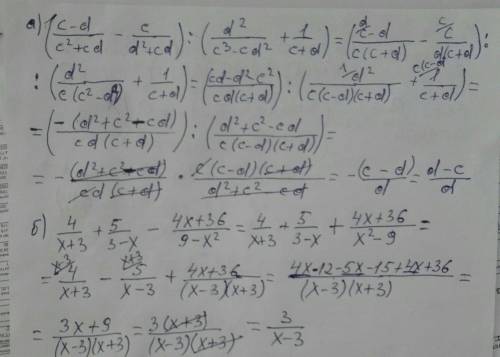 а) (c-d/c²+cd - c/d²+cd) : (d²/c³-cd² + 1/c+d) = (c-d/c(c+d) - c/d(c+d)) :
: (d²/c(c²-d²) + 1/c+d) = (cd-d²-c²/cd(c+d)) : (d²/c(c-d)(c+d) + 1/c+d) =
= (-(d²+c²-cd)/cd(c+d)) : (d²+c²-cd/c(c-d)(c+d)) =
= -(d²+c²-cd)/cd(c+d) · c(c-d)(c+d)/d²+c²-cd = -(c-d)/d = d-c/d
б) 4/x+3 + 5/3-x - 4x+36/9-x² = 4/x+3 + 5/3-x + 4x+36/x²-9 =
= 4/x+3 - 5/x-3 + 4x+36/(x-3)(x+3) = 4x-12-5x-15+4x+36/(x-3)(x+3) =
= 3x+9/(x-3)(x+3) = 3(x+3)/(x-3)(x+3) = 3/x-3